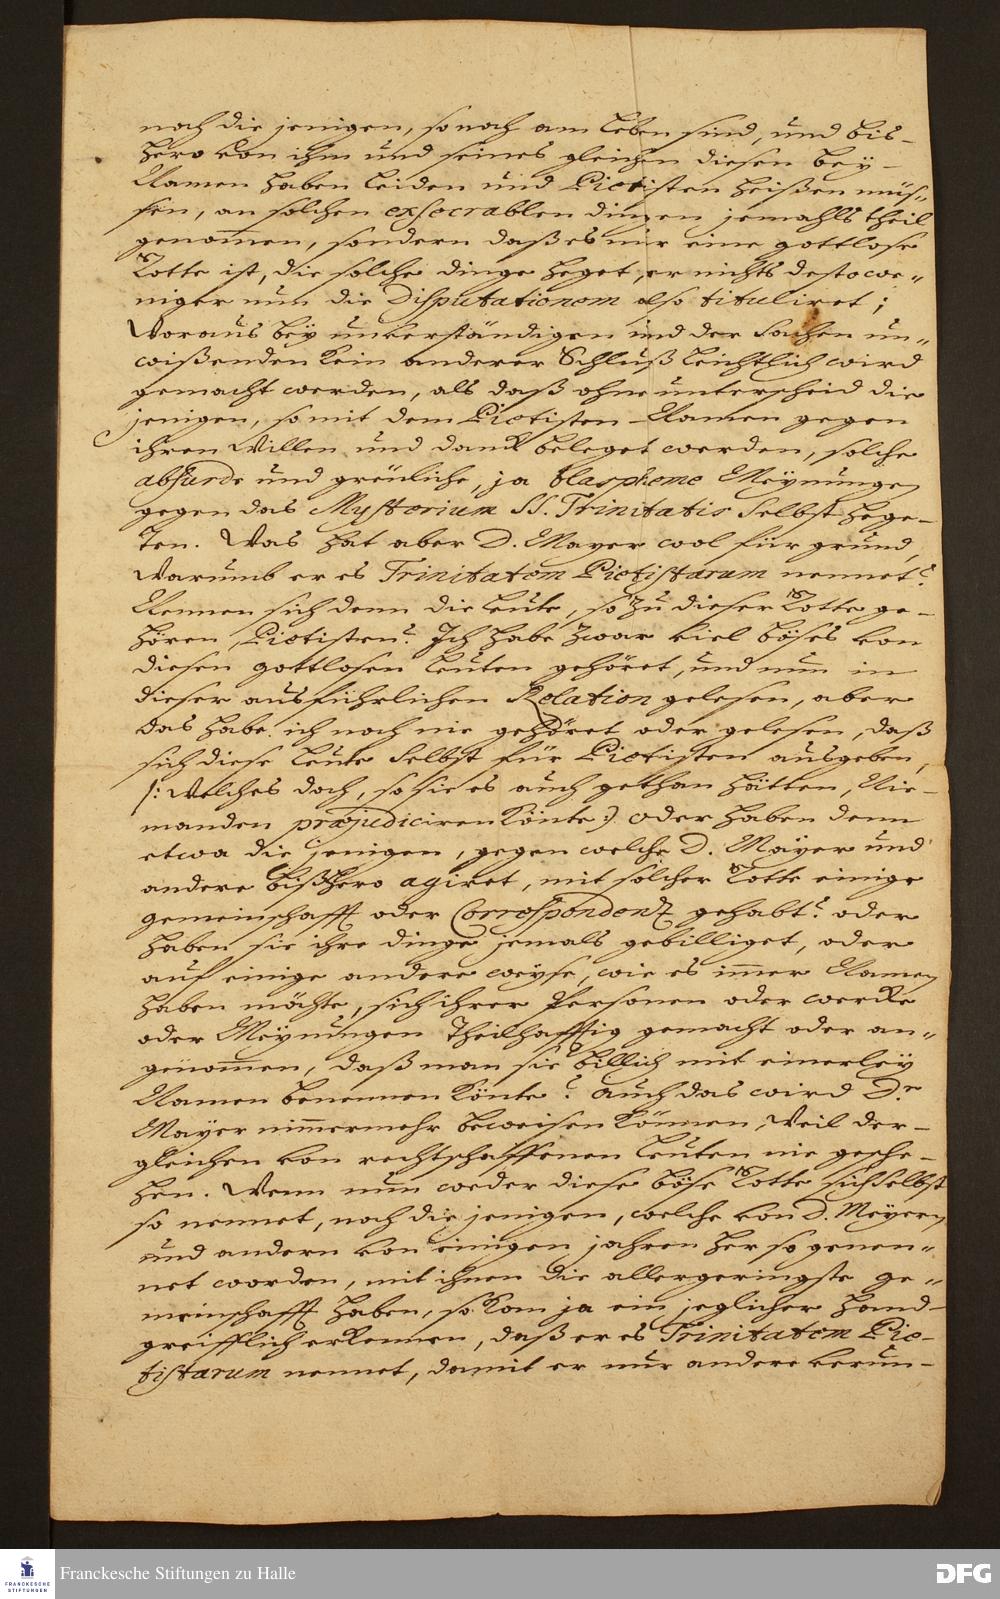 noch die jenigen, so noch am Leben sind, und bis-
hero von ihm und seines gleichen diesen bey-
Namen haben leiden und Pietisten heißen müs-
sen, an solchen exsecrablen dingen jemahls theil
genom̄en, sondern daß es nur eine gottlose
Rotte ist, die solche dinge heget, er nichts destowe-
niger nun die Disputationem also tituliret;
Woraus bey unverständigen und der Sachen un-
wißenden kein anderer Schluß leichtlich wird
gemacht werden, als daß ohne unterscheid die
jenigen, so mit dem Pietisten-Namen gegen
ihren Willen und danck beleget werden, solche
absurde und greuliche, ja blaspheme Meynungen
gegen das Mysterium SS. Trinitatis selbst hege-
ten. Was hat aber D. Mayer wol für grund,
Warumb er es Trinitatem Pietistarum nennet?
Nennen sich denn die Leute, so zu dieser Rotte ge-
hören, Pietisten? Ich habe zwar viel böses von
diesen gottlosen Leuten gehöret, und nun in
dieser ausführlichen Relation gelesen, aber
das habe ich noch nie gehöret oder gelesen, daß
sich diese Leute selbst für Pietisten ausgeben,
/: Welches doch, so sie es auch gethan hätten, Nie-
manden præjudiciren könte :/ oder haben denn
etwa die jenigen, gegen welche D. Mayer und
andere bißhero agiret, mit solcher Rotte einige
gemeinschafft oder Correspondentz gehabt? oder
haben sie ihre dinge jemals gebilliget, oder
auf einige andere weyse, wie es im̄er Namen
haben möchte, sich ihrer Personen oder wercke
oder Meynungen theilhafftig gemacht oder an-
genom̄en, daß man sie billich mit einerley
Namen benennen könte? Auch das wird Dr
Mayer nim̄ermehr beweisen können, Weil der-
gleichen von rechtschaffenen Leuten nie gesche-
hen. Wenn nun weder diese böse Rotte sich selbst
so nennet, noch die jenigen, welche von D. Meyern
und andern von einigen jahren her so genen-
net worden, mit ihnen die allergeringste ge-
meinschafft haben, so kan ja ein jeglicher hand-
greifflich erkennen, daß er es Trinitatem Pie-
tistarum nennet, damit er nur andere verun-
FRANCKESCHE
STIFTUNGEN
Franckesche Stiftungen zu Halle
DFG